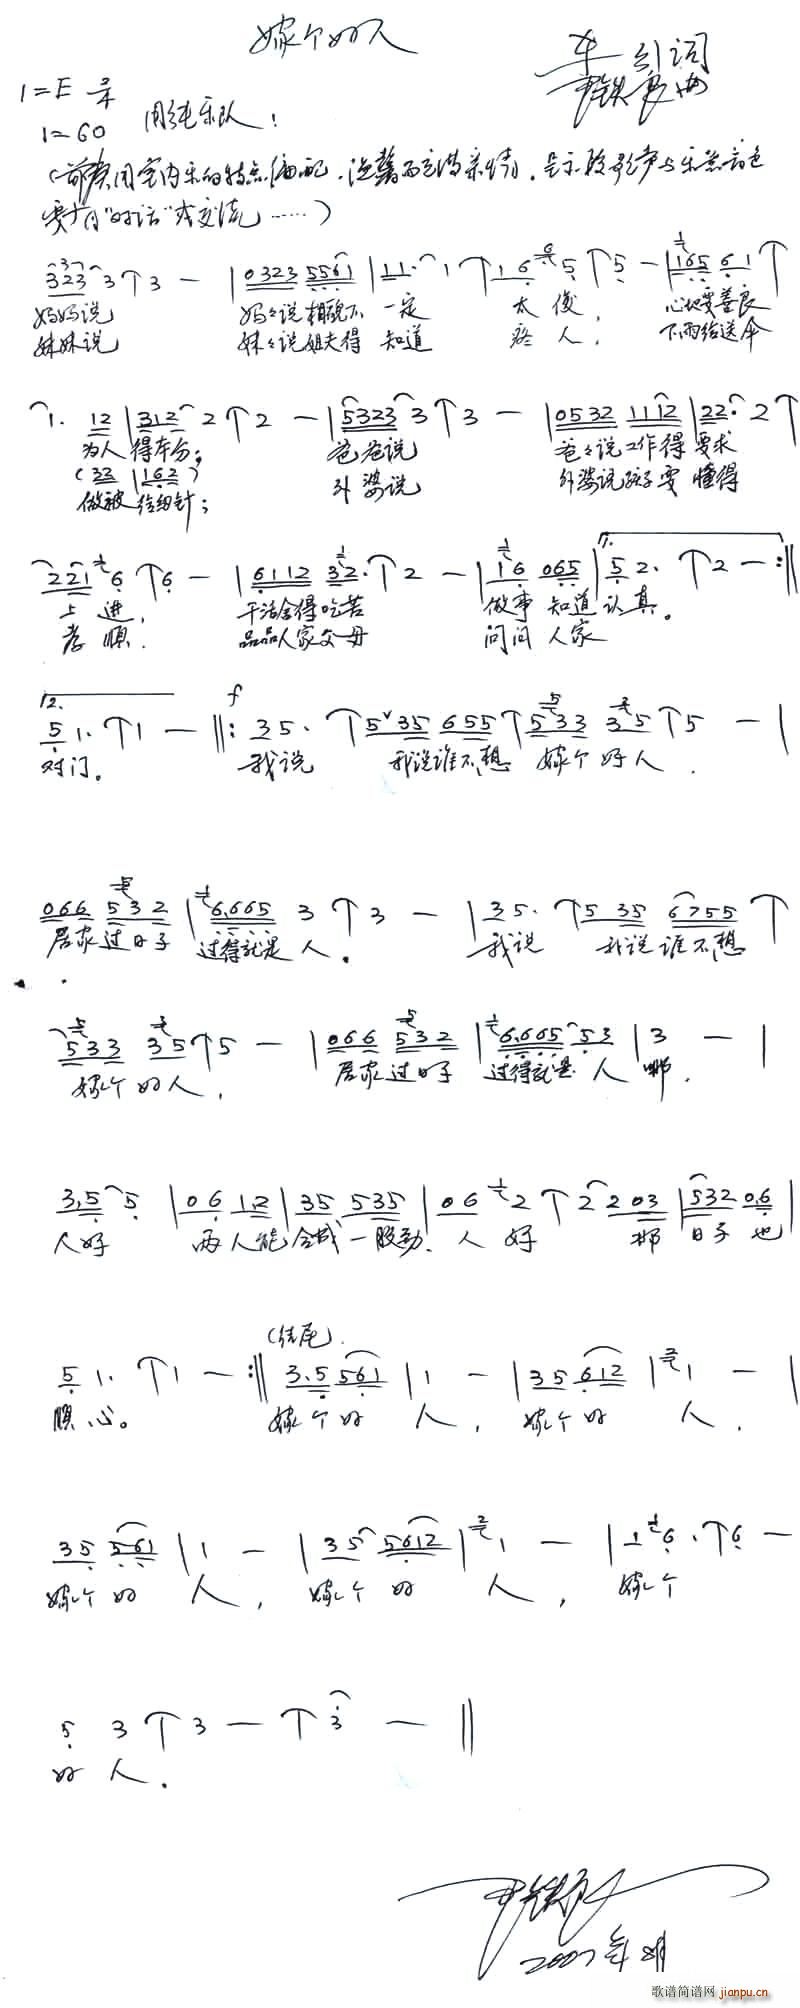 嫁个好人
词
尹铁良曲
1=E 2/4
1=60 用纯乐队!
要有"对话"或交流……)
323 3 3 — | 0323 5561 | 11· 1 1 6 5 5 — | 165 6 1
妈妈说 妈々说相貌不一定 太俊, 心地要善良
妹妹说 妹々说姐夫得知道 疼人, 下雨给送伞
1· 12 | 312 2 2 — | 5323 3 3 — | 0532 1112 | 22· 2
为人得本分; 爸爸说 爸々说工作得要求
(33 | 162)
做被给纫针; 外婆说 外婆说孩子要懂得
221 6 6 — | 6112 32· 2 — | 16 065 | 1. 52· 2 — :||
上进, 干活舍得吃苦 做事知道认真。
孝顺. 品品人家父母 问问人家
2. 51· 1 — ||: f 35· 5 35 655 533 35 5 — |
对门。 我说 我说谁不想 嫁个好人.
066 532 | 6.665 3 3 — | 35· 5 35 6755
居家过日子 过得就是人。 我说 我说谁不想
533 35 5 — | 066 532 | 6.665 53 | 3 — |
嫁个好人, 居家过日子 过得就是人 哪.
3.5 5 | 06 1.2 | 35 535 | 06 2 2 2 03 | 532 0.6 |
人好 两人能合成一股劲. 人好 那日子也
51· 1 — :|| (结尾) 3.5 561 | 1 — | 35 612 | 1 — |
顺心。 嫁个好人, 嫁个好人.
35 561 | 1 — | 35 5612 | 1 — | 1 6· 6 —
嫁个好人, 嫁个好人, 嫁个
5 3 3 — 3 — ||
好人.
尹铁良
2007年8月
歌谱简谱网 jianpu.cn